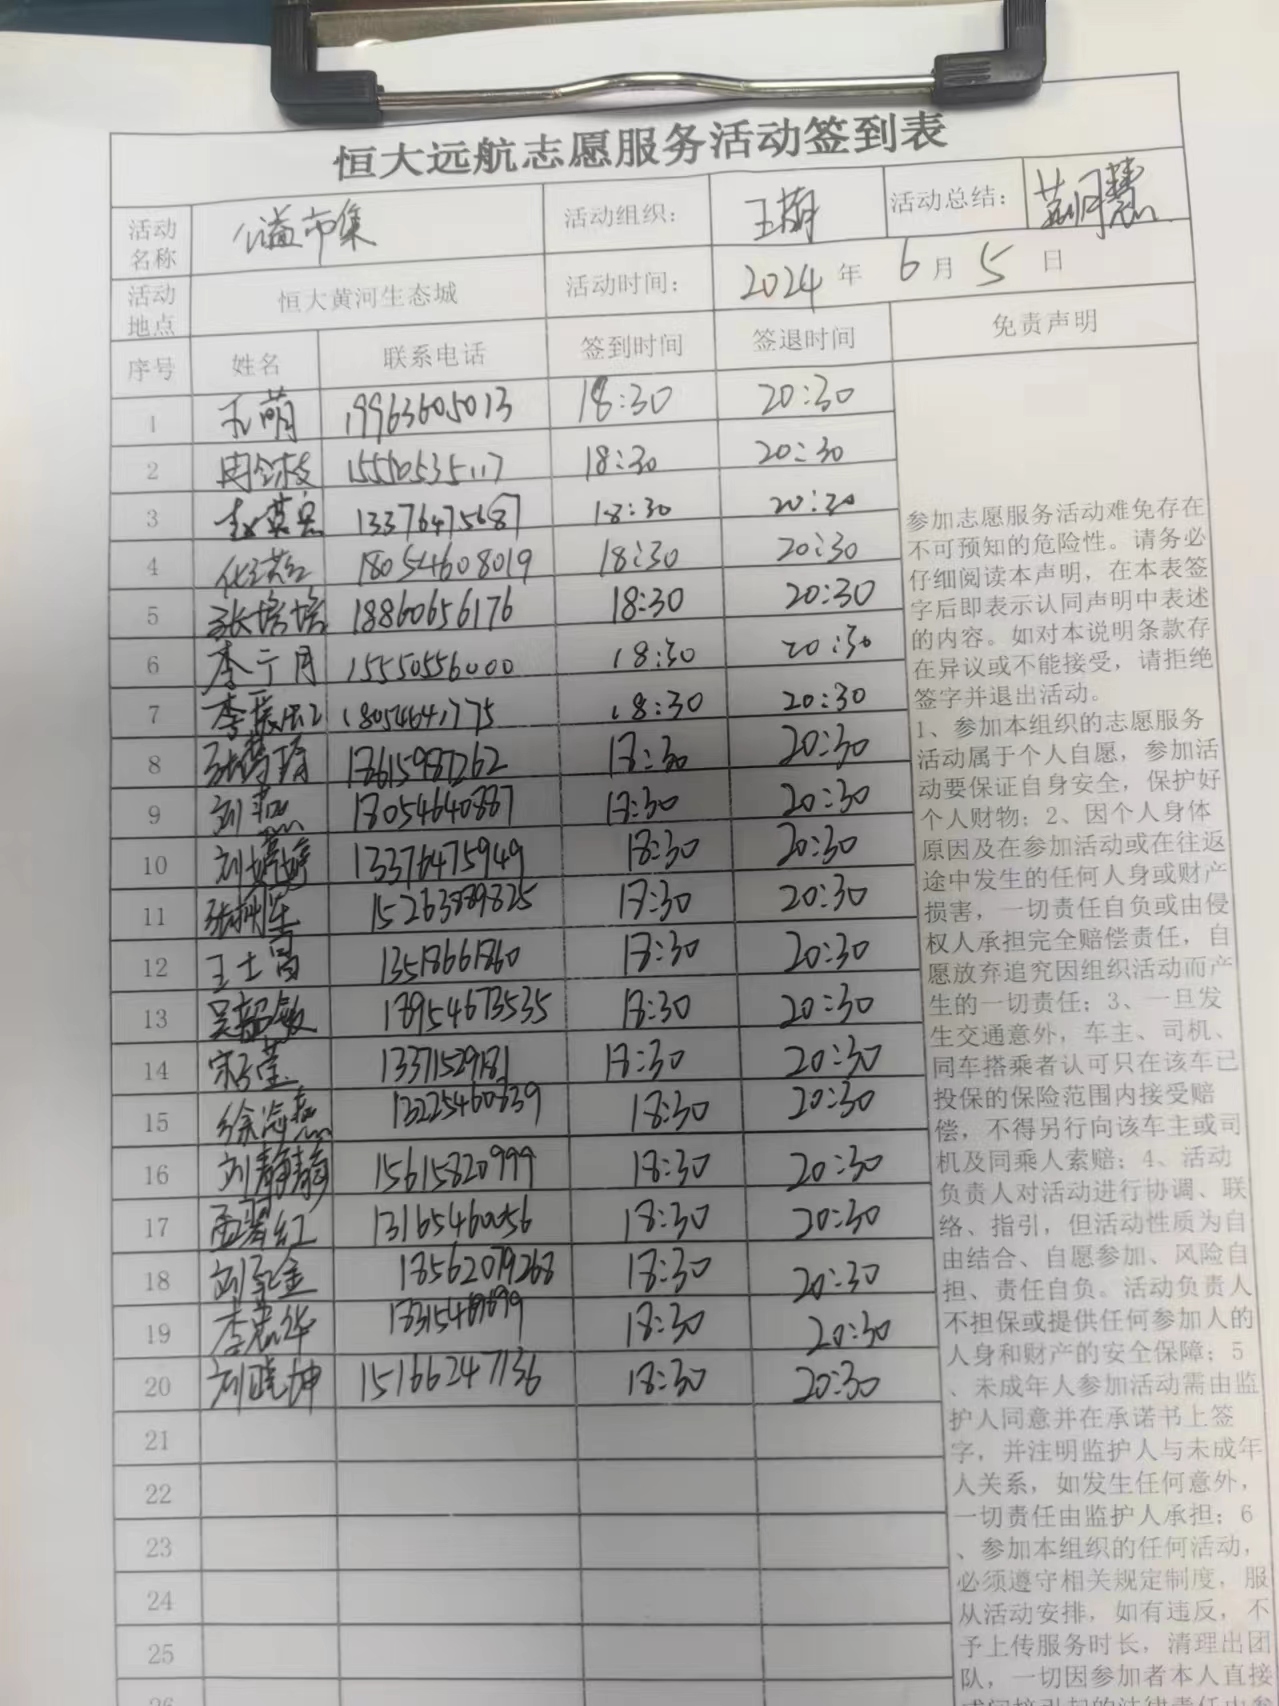 恒大远航志愿服务活动签到表
活动名称 公益市集 活动组织： 王萌 活动总结：
活动地点 恒大黄河生态城 活动时间： 2024年 6月 5日
序号 姓名 联系电话 签到时间 签退时间 免责声明
1 19963605013 18:30 20:30
2 15550535117 18:30 20:30
3 13376475687 18:30 20:30
4 18054608019 18:30 20:30
5 张培培 18860656176 18:30 20:30
6 李宁月 15550556000 18:30 20:30
7 18054641775 18:30 20:30
8 18615987262 18:30 20:30
9 18054640887 18:30 20:30
10 刘婷婷 13376475949 18:30 20:30
11 15263889825 18:30 20:30
12 王士富 13518661860 18:30 20:30
13 吴韶敏 18954673535 18:30 20:30
14 13371529181 18:30 20:30
15 徐海燕 13225460839 18:30 20:30
16 刘静静 15615820999 18:30 20:30
17 孟翠红 13165460056 18:30 20:30
18 18562079268 18:30 20:30
19 18:30 20:30
20 刘晓坤 15166247136 18:30 20:30
21
22
23
24
25
26
参加志愿服务活动难免存在
不可预知的危险性。请务必
仔细阅读本声明，在本表签
字后即表示认同声明中表述
的内容。如对本说明条款存
在异议或不能接受，请拒绝
签字并退出活动。
1、参加本组织的志愿服务
活动属于个人自愿，参加活
动要保证自身安全，保护好
个人财物；2、因个人身体
原因及在参加活动或在往返
途中发生的任何人身或财产
损害，一切责任自负或由侵
权人承担完全赔偿责任，自
愿放弃追究因组织活动而产
生的一切责任；3、一旦发
生交通意外，车主、司机、
同车搭乘者认可只在该车已
投保的保险范围内接受赔
偿，不得另行向该车主或司
机及同乘人索赔；4、活动
负责人对活动进行协调、联
络、指引，但活动性质为自
由结合、自愿参加、风险自
担、责任自负。活动负责人
不担保或提供任何参加人的
人身和财产的安全保障；5
、未成年人参加活动需由监
护人同意并在承诺书上签
字，并注明监护人与未成年
人关系，如发生任何意外，
一切责任由监护人承担；6
、参加本组织的任何活动，
必须遵守相关规定制度，服
从活动安排，如有违反，不
予上传服务时长，清理出团
队，一切因参加者本人直接